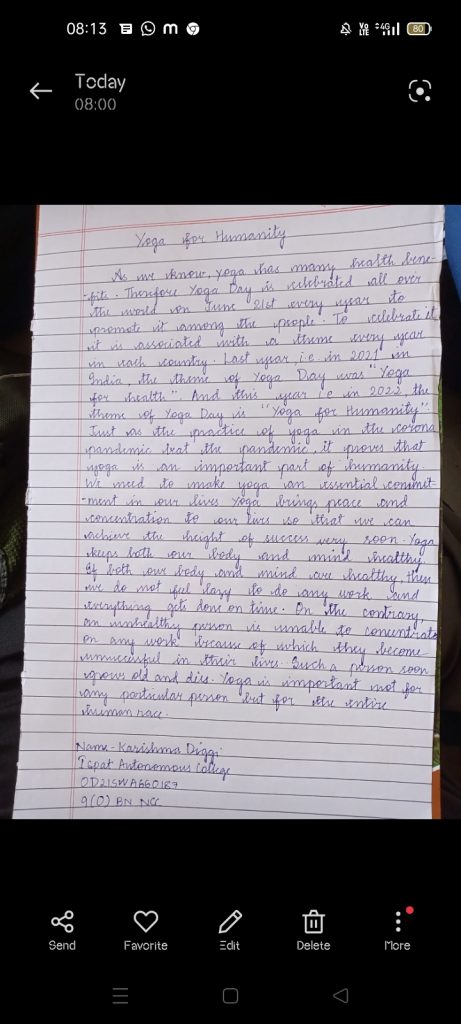 08:13
Vo LTE 4G 80
Today
08:00
Yoga for Humanity
As we know, yoga has many health bene-
-fits. Therefore Yoga Day is celebrated all over
the world on June 21st every year to
promote it among the people. To celebrate it,
it is associated with a theme every year
in each country. Last year, i.e in 2021 in
India, the theme of Yoga Day was "Yoga
for health". And this year i.e in 2022, the
theme of Yoga Day is "Yoga for Humanity".
Just as the practice of yoga in the corona
pandemic beat the pandemic, it proves that
yoga is an important part of humanity.
We need to make yoga an essential commit-
-ment in our lives Yoga brings peace and
concentration to our lives so that we can
achieve the height of success very soon. Yoga
keeps both our body and mind healthy.
If both our body and mind are healthy, then
we do not feel lazy to do any work and
everything gets done on time. On the contrary,
an unhealthy person is unable to concentrate
on any work because of which they become
unsuccessful in their lives. Such a person soon
grows old and dies. Yoga is important not for
any particular person but for the entire
human race
Name - Karishma Diggi
Autonomous College
OD21SWA660187
9(O) BN NCC
Send
Favorite
Edit
Delete
More